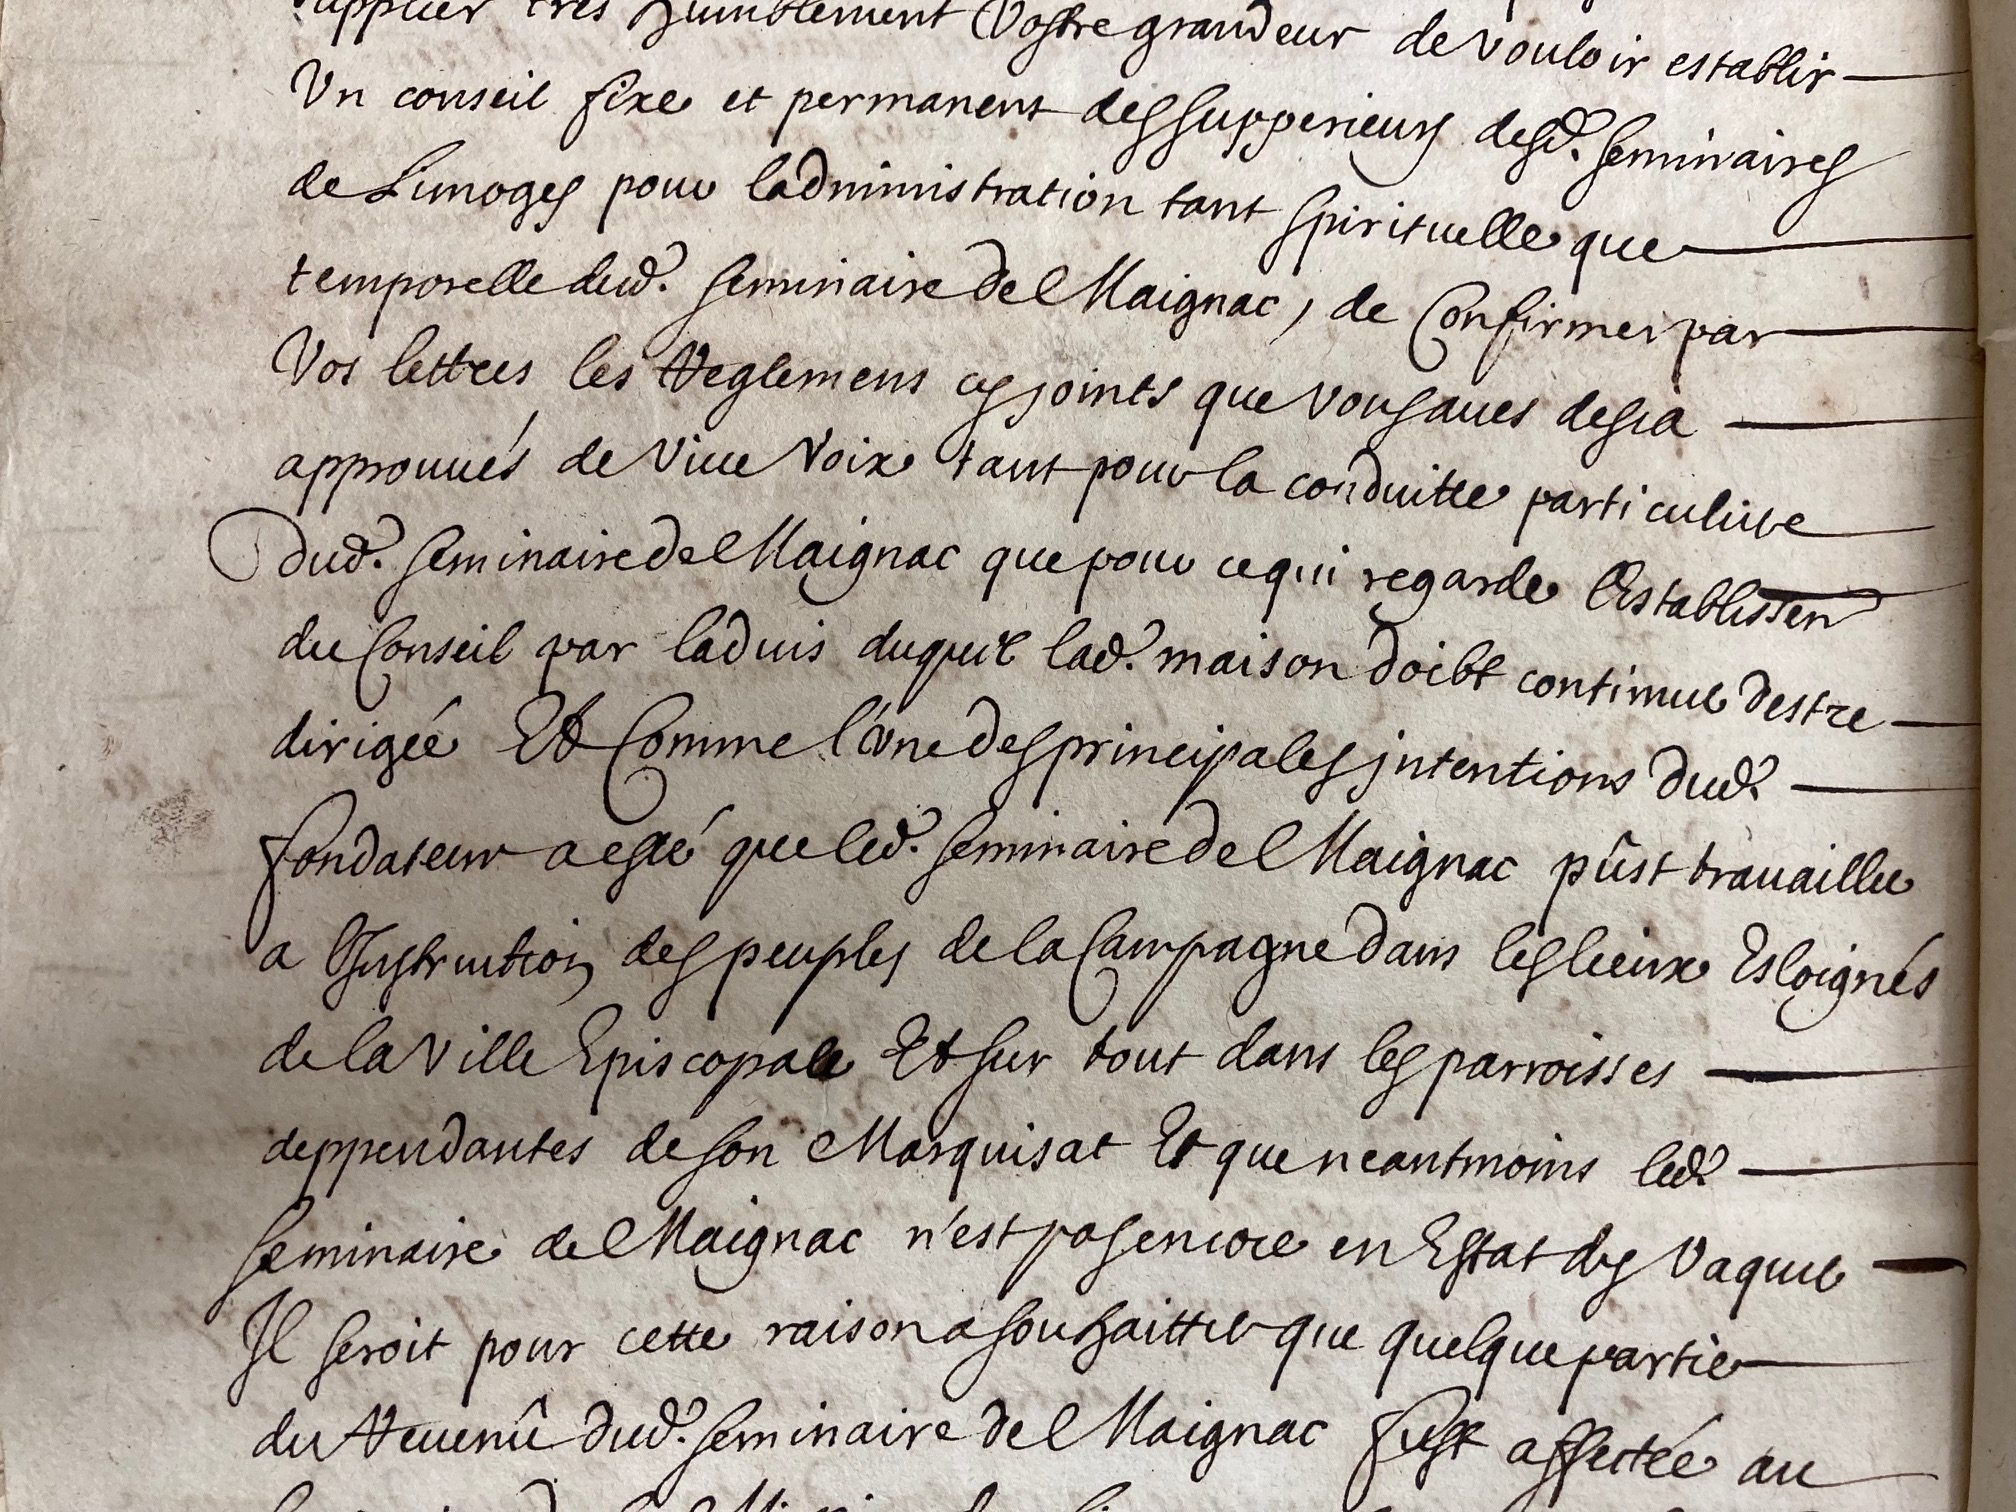 supplier tres humblement Vostre grandeur de vouloir establir
Un conseil fixe et permanent des supperieurs desd. seminaires
de Limoges pour ladministration tant spirituelle que
temporelle dud. seminaire de Maignac, de Confirmer par
Vos lettres les Reglemens cy joints que vous aues desia
approuués de Viue Voix tant pour la conduitte particuliere
dud. seminaire de Maignac que pour ce qui regarde l'Establissem
du Conseil par laduis duquel lad. maison doibt continuer destre
dirigée Et Comme l'une des principales jntentions dud.
fondateur a esté que led. seminaire de Maignac pûst trauailler
a l'Instruction des peuples de la Campagne dans les lieux Esloignés
de la Ville Episcopale Et sur tout dans les parroisses
deppendantes de son Marquisat Et que neantmoins led.
seminaire de Maignac n'est pas encore en Estat dy Vaquer
Il seroit pour cette raison a souhaitter que quelque partie
du Reuenû dud. seminaire de Maignac fust affectée au